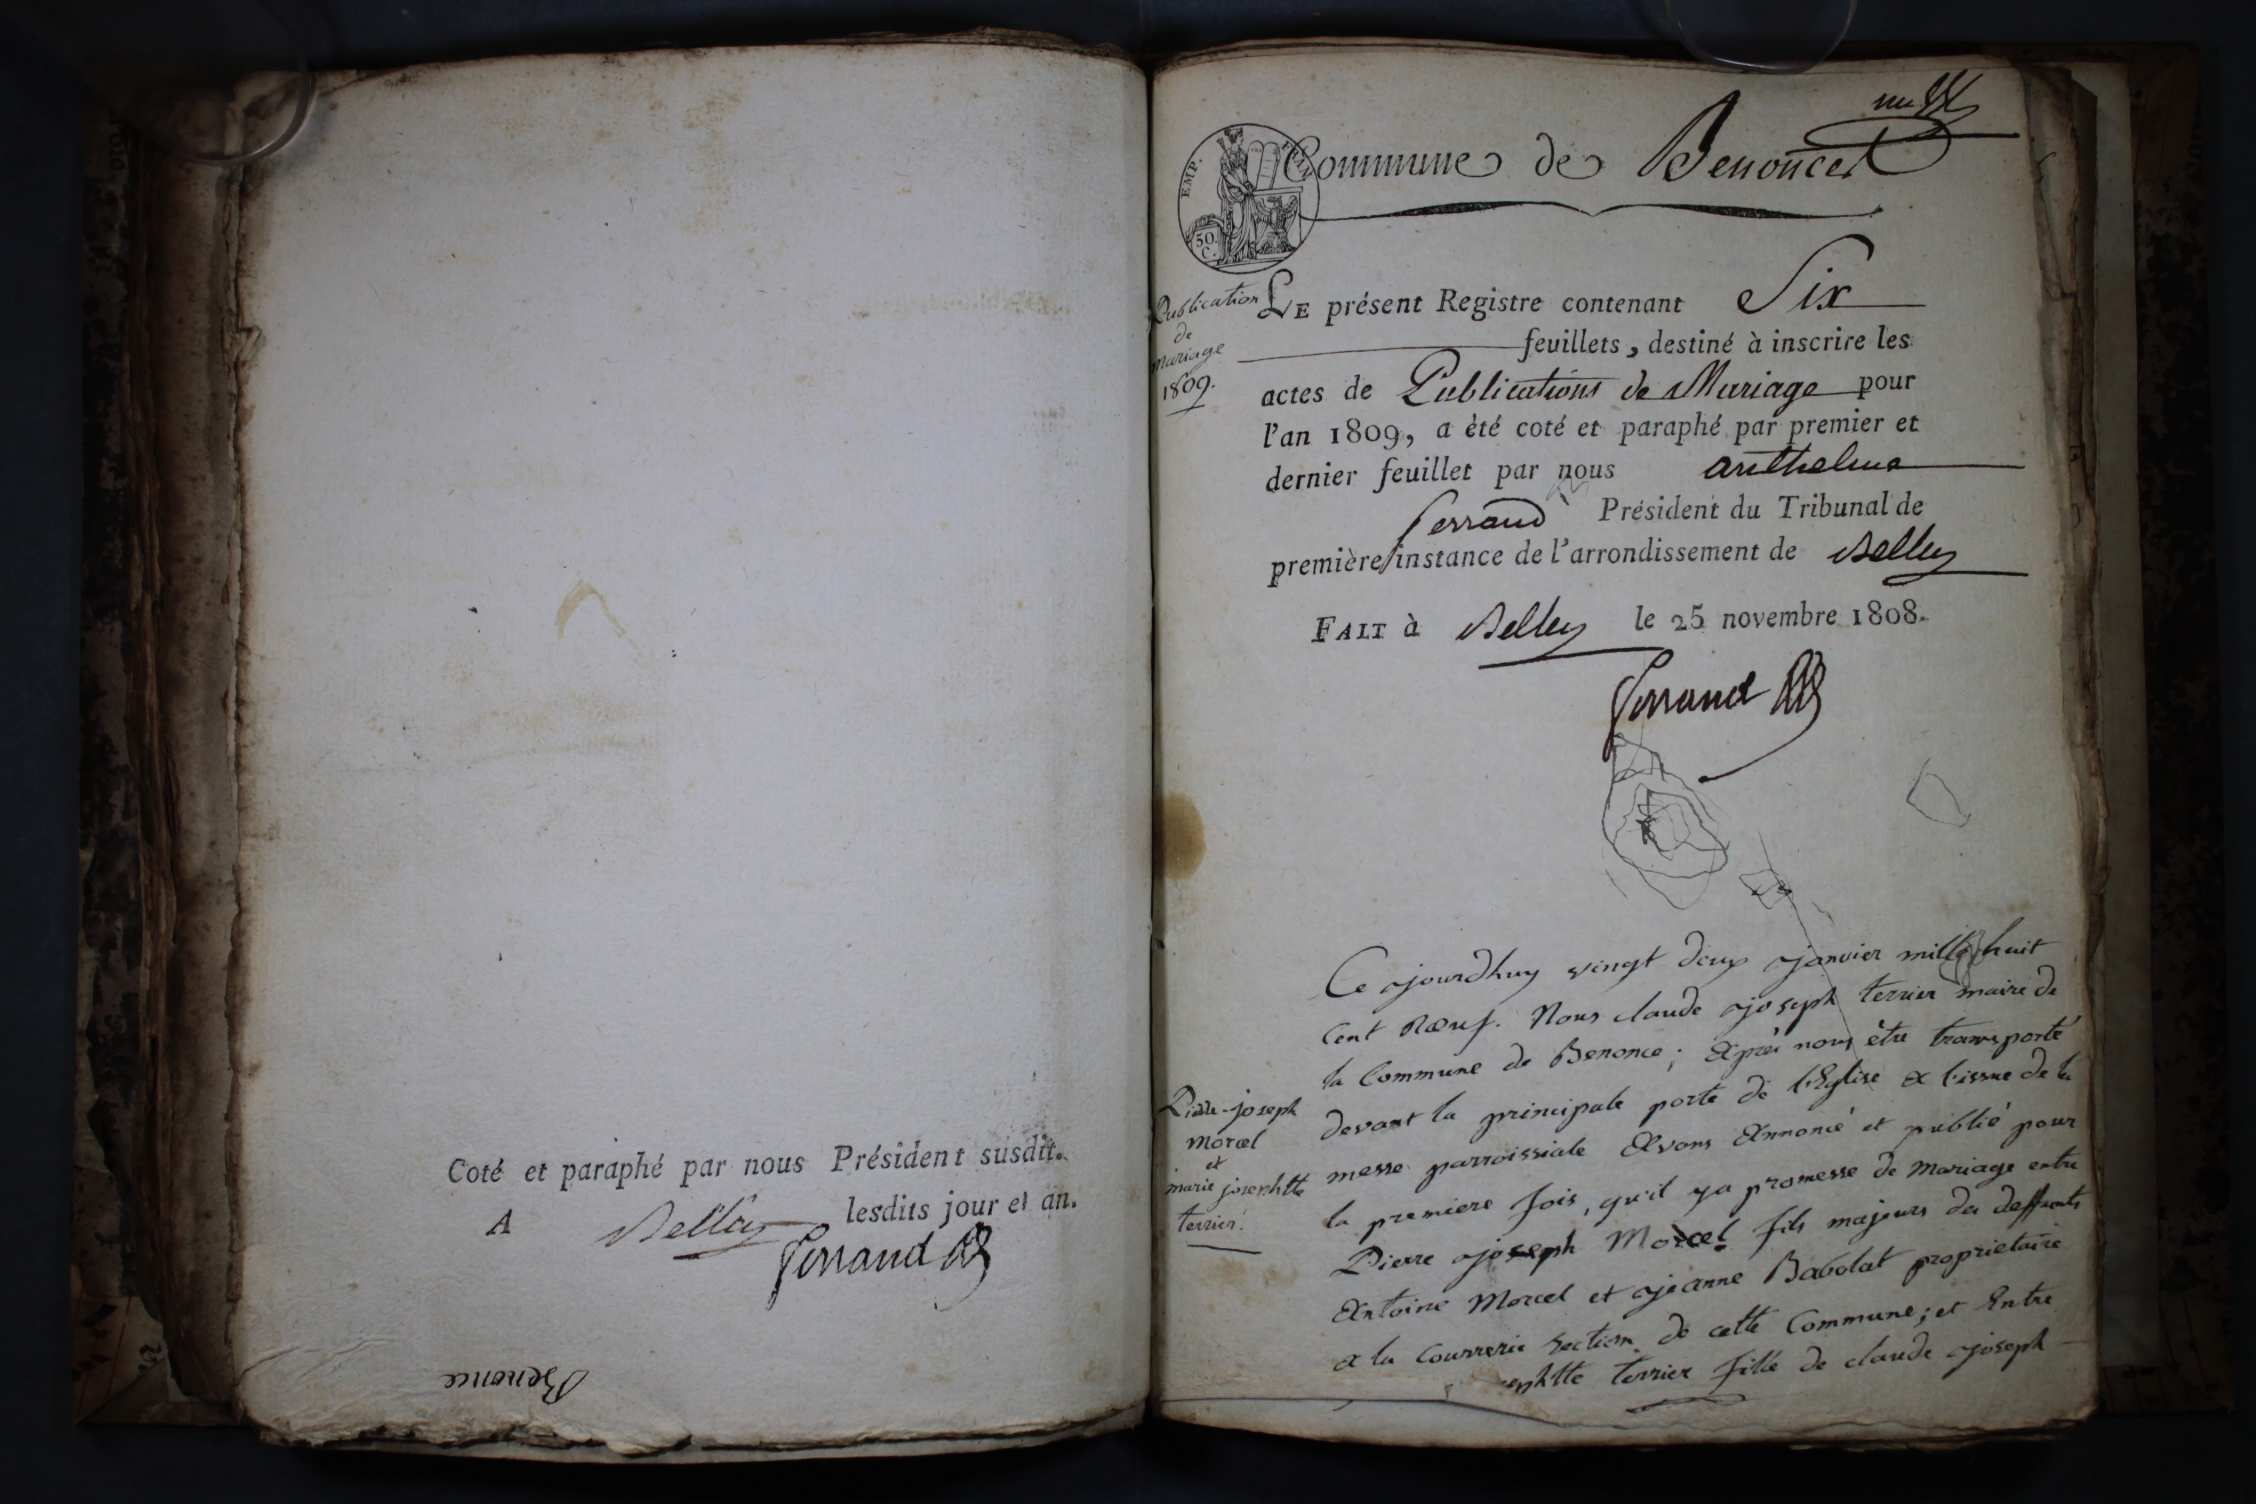 Coté et paraphé par nous Président susdit.
A Belley lesdits jour et an.
Ferrand
Benonce
Commune de Benonces
EMP.
50.
C.
Publication
de
mariage
1809.
LE présent Registre contenant Six
feuillets, destiné à inscrire les
actes de Publications de Mariage pour
l'an 1809, a été coté et paraphé par premier et
dernier feuillet par nous anthelme
ferrand Président du Tribunal de
première instance de l'arrondissement de Belley
FAIT à Belley le 25 novembre 1808.
Ferrand
Ce ajourdhuy vingt deux janvier mille huit
Cent Nœuf. Nous claude joseph terrier maire de
la Commune de Benonce; Aprèi nous être transporté
devant la principale porte de l'Eglise A l'issue de la
messe parroissiale Avons Annoncé et publié pour
la premiere fois, qu'il ya promesse de Mariage entre
Pierre joseph Morcel fils majeurs des deffunts
Antoine Morcel et jeanne Babolat proprietaire
a la Courrerie section de cette Commune; et Entre
terrier fille de claude joseph
Pierre-joseph
morcel
et
marie josephtte
terrier.